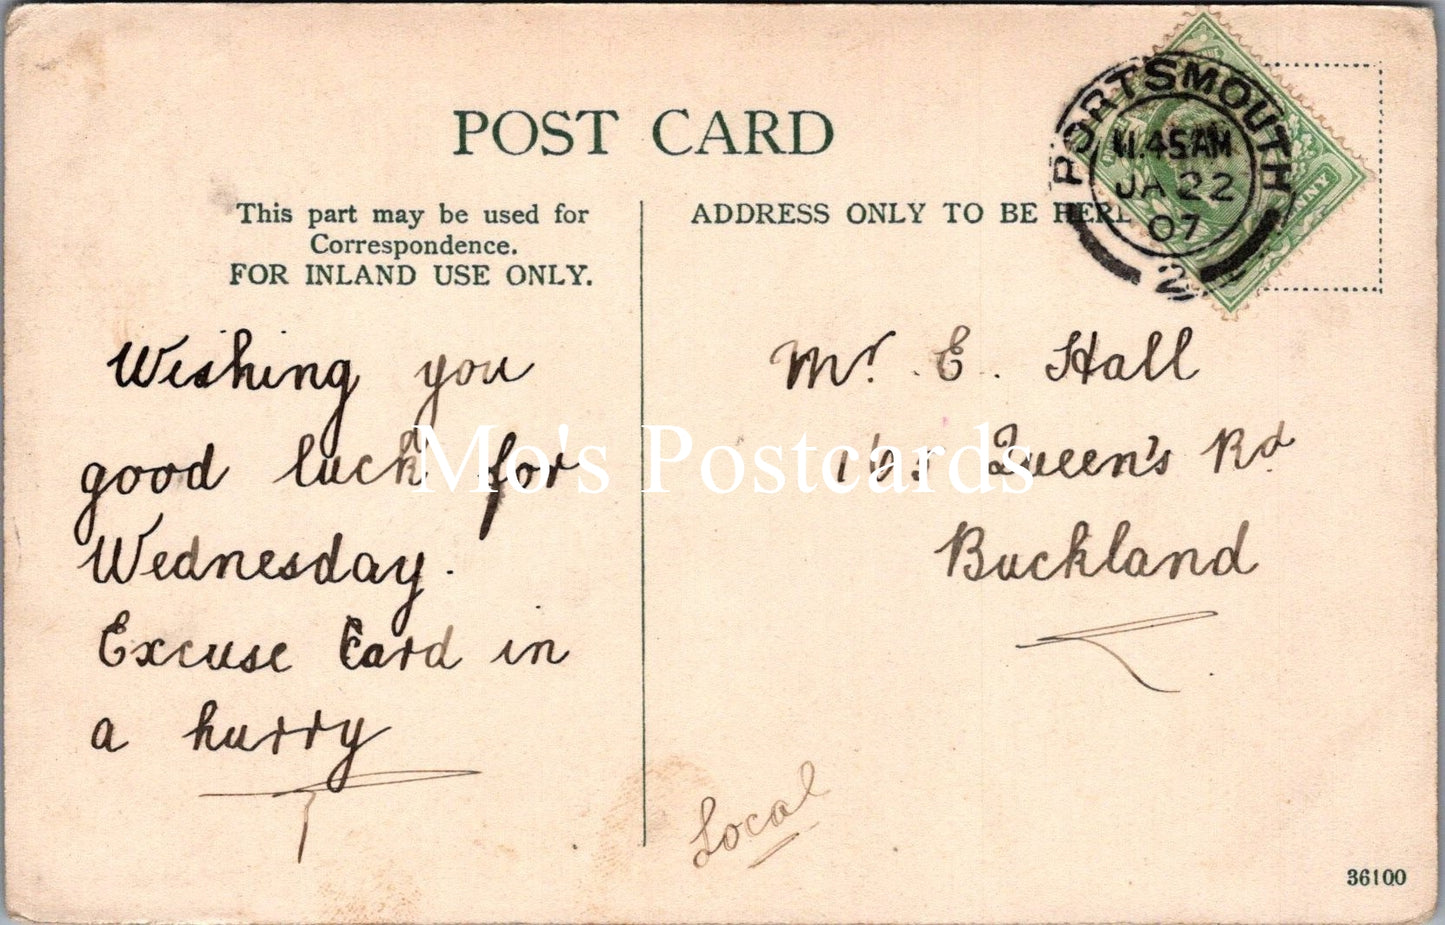 POST CARD
This part may be used for
Correspondence.
FOR INLAND USE ONLY.
ADDRESS ONLY TO BE HERE
PORTSMOUTH
11.45AM
JA 22
07
2
Wishing you
good luck for
Wednesday.
Excuse Card in
a hurry
Mr. E. Hall
Queen's Rd
Buckland
Local
Mo's Postcards
36100